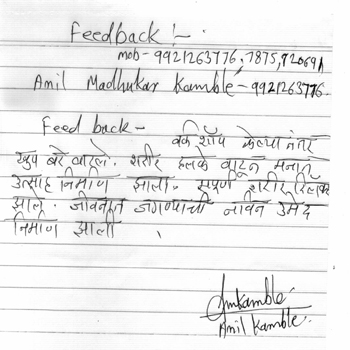 Feedback :-
mob - 9921263776, 7875,72069A
Anil Madhukar Kamble - 9921263776.
Feed back - वर्क शॉप केल्या नंतर
खुप बरे वाटले. शरीर हलके वाटून मनात
उत्साह निर्माण झाला. संपूर्ण शरीर रिलॅक्स
झाले. जीवनात जगण्याची नाविन उमेद
निर्माण झाली
Amkamble
Anil Kamble.